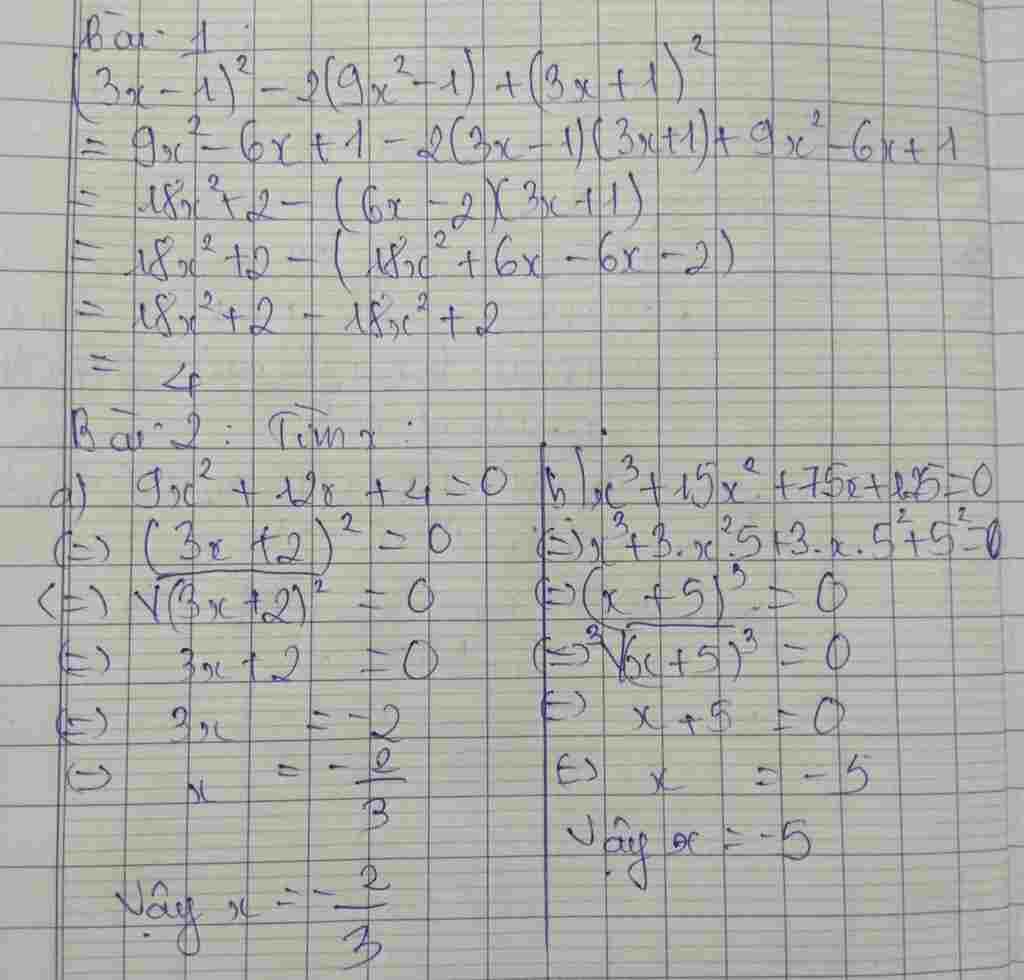 Bài 1:
(3x - 1)² - 2(9x² - 1) + (3x + 1)²
= 9x² - 6x + 1 - 2(3x - 1)(3x + 1) + 9x² - 6x + 1
= 18x² + 2 - (6x - 2)(3x + 1)
= 18x² + 2 - (18x² + 6x - 6x - 2)
= 18x² + 2 - 18x² + 2
= 4
Bài 2: Tìm x:
a) 9x² + 12x + 4 = 0
(=) (3x + 2)² = 0
(=) √(3x + 2)² = 0
(=) 3x + 2 = 0
(=) 3x = -2
(=) x = -2/3
Vậy x = -2/3
b) x³ + 15x² + 75x + 125 = 0
(=) x³ + 3.x².5 + 3.x.5² + 5² = 0
(=) (x + 5)³ = 0
(=) ³√(x + 5)³ = 0
(=) x + 5 = 0
(=) x = -5
Vậy x = -5